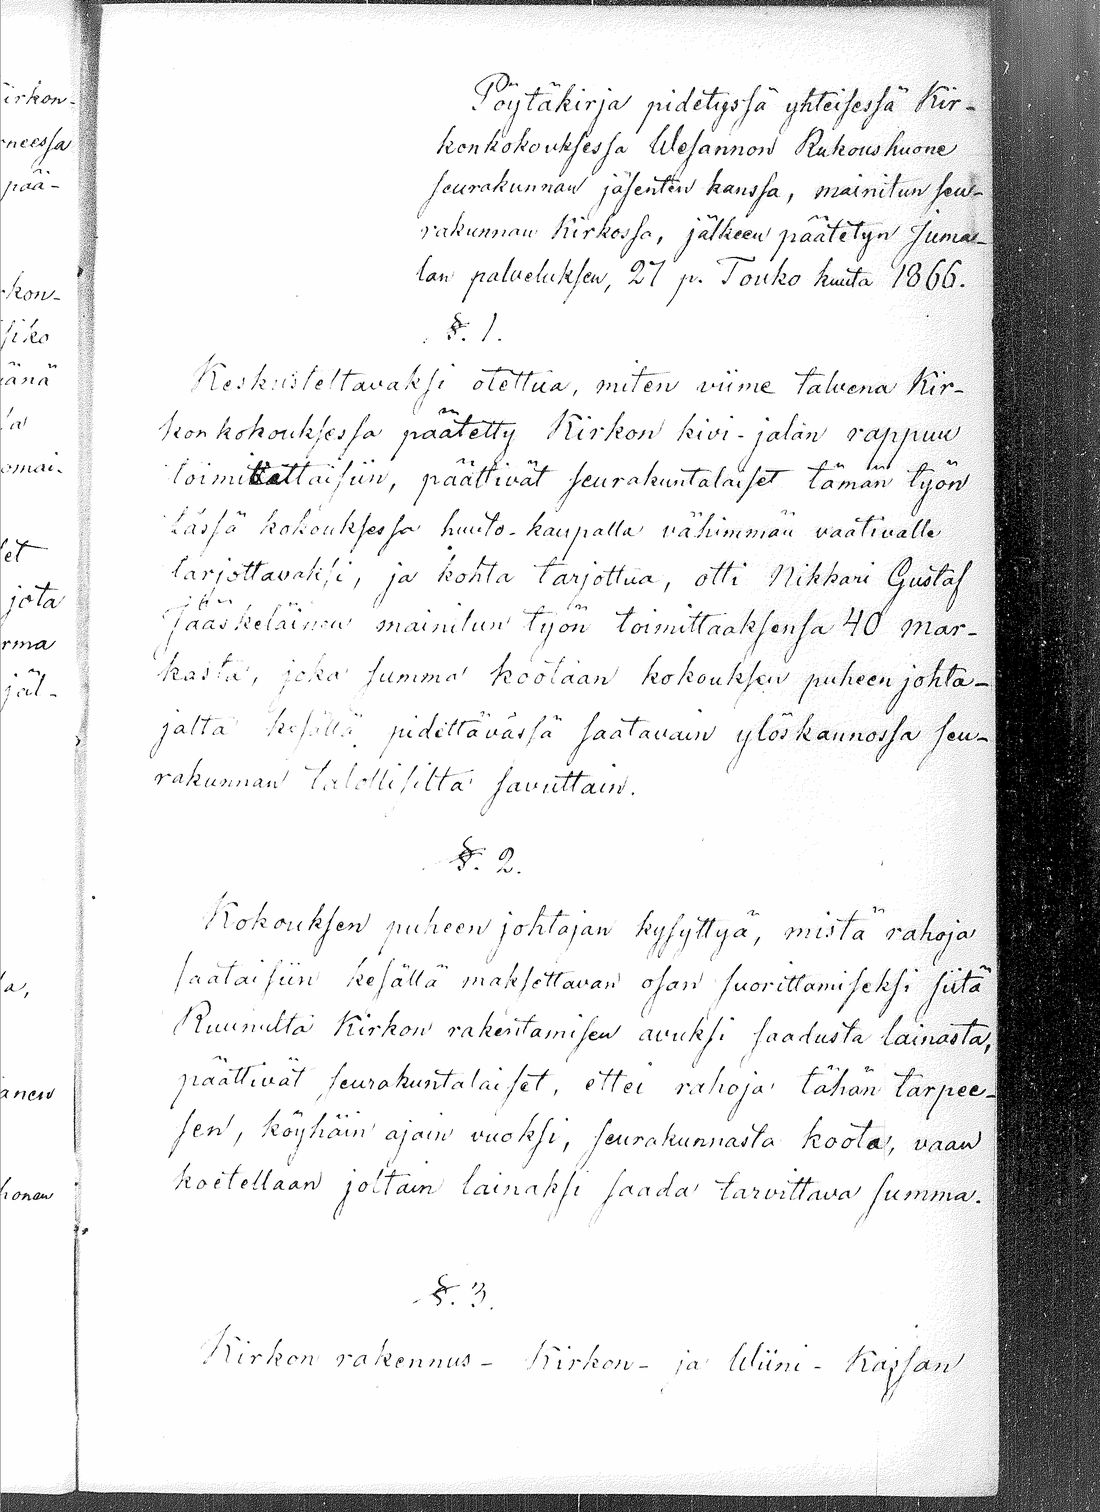 Pöytäkirja pidetyssä yhteisessä Kir-
konkokouksessa Wesannon Rukoushuone
seurakunnan jäsenten kanssa, mainitun seu-
rakunnan Kirkossa, jälkeen päätetyn Juma-
lan palveluksen, 27 p. Touko kuuta 1866.
§. 1.
Keskusteltavaksi otettua, miten viime talvena Kir-
konkokouksessa päätetty Kirkon kivi-jalan rappuu
toimitettaisiin, päättivät seurakuntalaiset tämän työn
tässä kokouksessa huuto-kaupalla vähimmän vaativalle
tarjottavaksi, ja kohta tarjottua, otti Nikkari Gustaf
Jääskeläinen mainitun työn toimittaaksensa 40 mar-
kasta, joka summa kootaan kokouksen puheenjohta-
jalta kesällä pidettävässä saatavain ylöskannossa seu-
rakunnan talollisilta savuttain.
§. 2.
Kokouksen puheenjohtajan kysyttyä, mistä rahoja
saataisiin kesällä maksettavan osan suorittamiseksi siitä
Ruunulta Kirkon rakentamisen avuksi saadusta lainasta,
päättivät seurakuntalaiset, ettei rahoja tähän tarpee-
sen, köyhäin ajain vuoksi, seurakunnasta koota, vaan
koetellaan joltain lainaksi saada tarvittava summa.
§. 3.
Kirkon rakennus- Kirkon- ja Wiini- Kassan
irkon-
neessa
pää-
rkon-
siko
jänä
la
omai-
set
jota
rma
jäl-
la,
änen
honen